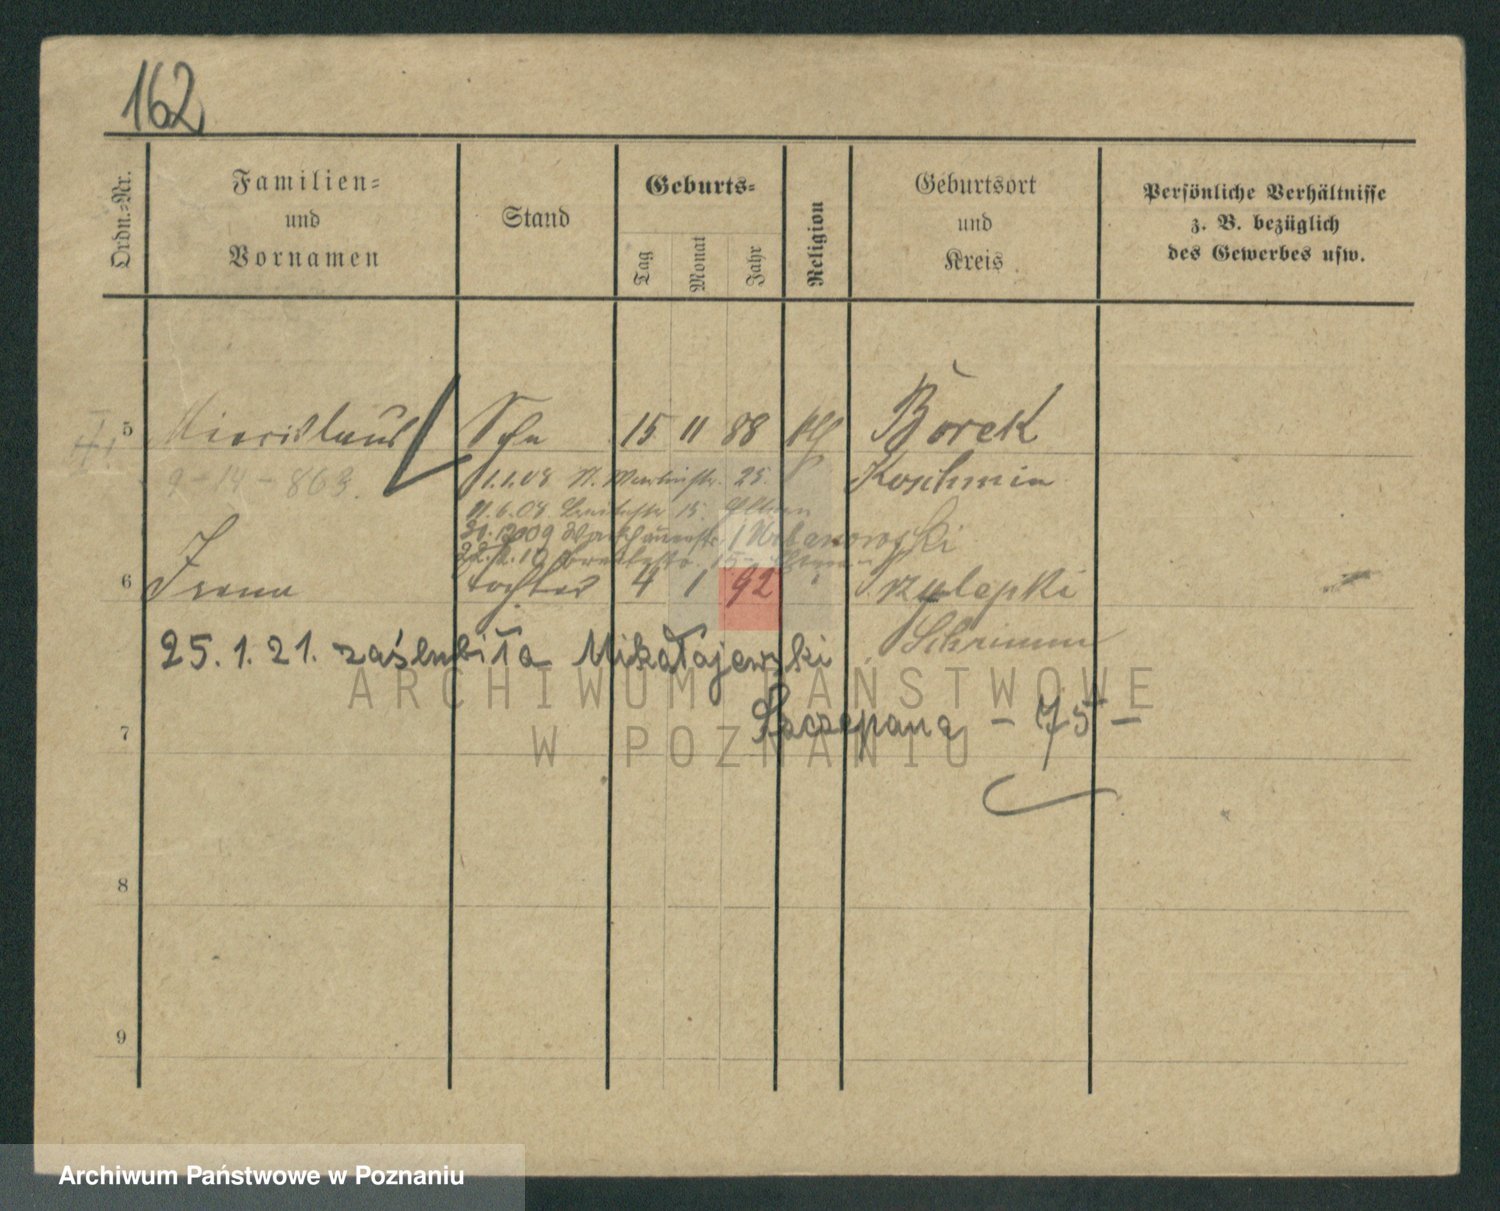 162
Ordn.-Nr.
Familien- und Vornamen
Stand
Geburts-
Tag
Monat
Jahr
Religion
Geburtsort und Kreis
Persönliche Verhältnisse z. B. bezüglich des Gewerbes usw.
5 Miecislaus Sohn 15 11 88 kth Borek
9-14-863. 1.1.08 25. Koschmin
11.6.08. 15. Eltern
Urbanowski
6 Irena tochter 4 1 92 " Szulepki
Schrimm
25. 1. 21. zaślubiła Mikołajewski
7 Szczepana - 75 -
8
9
ARCHIWUM PAŃSTWOWE
W POZNANIU
Archiwum Państwowe w Poznaniu